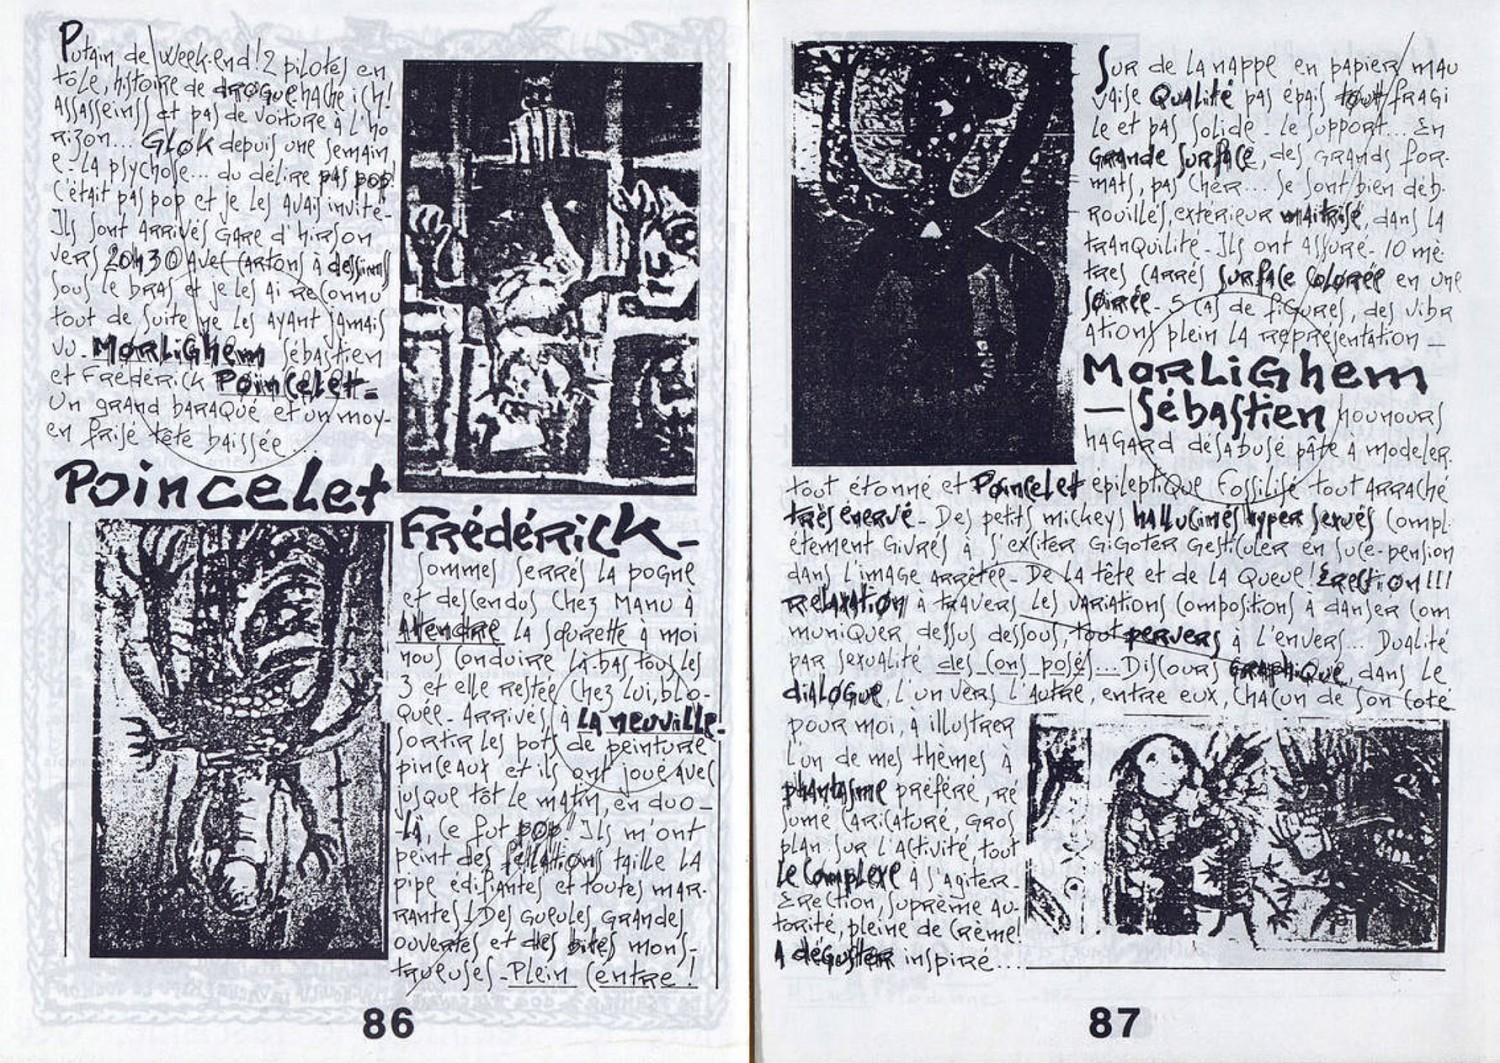 Putain de week-end! 2 pilotes en
tôle, histoire de drogue haché ich!
Assasseinss et pas de voiture à l'ho
rizon... Glok depuis une semain
e - La psychose... du délire pas pop!
C'était pas pop et je les avais invité-
Ils sont arrivés gare d'hirson
vers 20h30 avec cartons à dessins
sous le bras et je les ai reconnu
tout de suite ne les ayant jamais
vu - Morlighem Sébastien
et Frédérick Poincelet-
Un grand baraqué et un moy-
en frisé tête baissée...
Poincelet
Frédérick-
Sommes serrés la pogne
et descendus chez Manu à
Attendre la sourette à moi
nous conduire là-bas tous les
3 et elle restée chez lui, blo-
quée - Arrivés à La neuville-
Sortir les pots de peinture
pinceaux et ils ont joué avec
jusque tôt le matin, en duo -
Là, ce fut pop! Ils m'ont
peint des fellations taille la
pipe édifiantes et toutes mar-
rantes! Des gueules grandes
ouvertes et des bites mons-
trueuses - Plein centre!
86
Sur de la nappe en papier mau
vaise qualité pas épais tout fragi
le et pas solide - le support... En
grande surface, des grands for-
mats, pas cher... Se sont bien déb-
rouillés, extérieur maitrisé, dans la
tranquilité - Ils ont assuré - 10 mè-
tres carrés surface colorée en une
soirée - 5 cas de figures, des vibr
ations plein la représentation -
Morlighem
- Sébastien nounours
hagard désabusé pâte à modeler
tout étonné et Poincelet épileptique fossilisé tout arraché
très énervé - Des petits mickeys hallucinés hyper sexués compl-
étement givrés à s'exciter gigoter gesticuler en suce-pension
dans l'image arrêtée - De la tête et de la queue! Érection!!!
Relaxation à travers les variations compositions à danser com
muniquer dessus dessous, tout pervers à l'envers... Dualité
par sexualité des cons posés... Discours graphique, dans le
dialogue, l'un vers l'autre, entre eux, chacun de son coté
pour moi, à illustrer
l'un de mes thèmes à
phantasme préféré, ré
sumé caricaturé, gros
plan sur l'activité, tout
le complexe à s'agiter -
Érection, suprème au-
torité, pleine de crème!
A déguster inspiré....
87